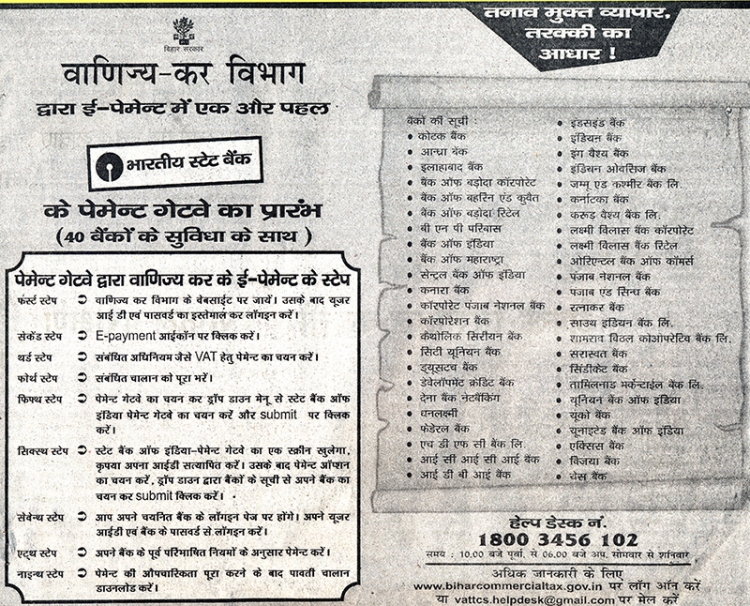 बिहार सरकार
वाणिज्य-कर विभाग
द्वारा ई-पेमेन्ट में एक और पहल
भारतीय स्टेट बैंक
के पेमेन्ट गेटवे का प्रारंभ
(40 बैंकों के सुविधा के साथ)
पेमेन्ट गेटवे द्वारा वाणिज्य कर के ई-पेमेन्ट के स्टेप
फर्स्ट स्टेप ➲ वाणिज्य कर विभाग के वेबसाईट पर जायें। उसके बाद यूजर
आई डी एवं पासवर्ड का इस्तेमाल कर लॉगइन करें।
सेकेंड स्टेप ➲ E-payment आईकॉन पर क्लिक करें।
थर्ड स्टेप ➲ संबंधित अधिनियम जैसे VAT हेतु पेमेन्ट का चयन करें।
फोर्थ स्टेप ➲ संबंधित चालान को पूरा भरें।
फिफ्थ स्टेप ➲ पेमेन्ट गेटवे का चयन कर ड्रॉप डाउन मेनू से स्टेट बैंक ऑफ
इंडिया पेमेन्ट गेटवे का चयन करें और submit पर क्लिक
करें।
सिक्स्थ स्टेप ➲ स्टेट बैंक ऑफ इंडिया-पेमेन्ट गेटवे का एक स्क्रीन खुलेगा,
कृपया अपना आईडी सत्यापित करें। उसके बाद पेमेन्ट ऑप्शन
का चयन करें, ड्रॉप डाउन द्वारा बैंकों के सूची से अपने बैंक का
चयन कर submit क्लिक करें।
सेवेन्थ स्टेप ➲ आप अपने चयनित बैंक के लॉगइन पेज पर होंगे। अपने यूजर
आईडी एवं बैंक के पासवर्ड से लॉगइन करें।
एट्थ स्टेप ➲ अपने बैंक के पूर्व परिभाषित नियमों के अनुसार पेमेन्ट करें।
नाइन्थ स्टेप ➲ पेमेन्ट की औपचारिकता पूरा करने के बाद पावती चालान
डाउनलोड करें।
तनाव मुक्त व्यापार,
तरक्की का
आधार !
बैंकों की सूची :
• कोटक बैंक
• आन्ध्रा बैंक
• इलाहाबाद बैंक
• बैंक ऑफ बड़ोदा कॉरपोरेट
• बैंक ऑफ बहरिन एंड कुवैत
• बैंक ऑफ बड़ोदा रिटेल
• बी एन पी परिबास
• बैंक ऑफ इंडिया
• बैंक ऑफ महाराष्ट्रा
• सेन्ट्रल बैंक ऑफ इंडिया
• कनारा बैंक
• कॉरपोरेट पंजाब नेशनल बैंक
• कॉरपोरेशन बैंक
• कैथोलिक सिरीयन बैंक
• सिटी यूनियन बैंक
• ड्यूसटच बैंक
• डेवेलॉपमेंट क्रेडिट बैंक
• देना बैंक नेटबैंकिंग
• धनलक्ष्मी
• फेडेरल बैंक
• एच डी एफ सी बैंक लि
• आई सी आई सी आई बैंक
• आई डी बी आई बैंक
• इंडसइंड बैंक
• इंडियन बैंक
• इंग वैश्य बैंक
• इंडियन ओवसिज बैंक
• जम्मू एंड कश्मीर बैंक लि.
• कर्नाटका बैंक
• करूड़ वैश्य बैंक लि.
• लक्ष्मी विलास बैंक कॉरपोरेट
• लक्ष्मी विलास बैंक रिटेल
• ओरिएन्टल बैंक ऑफ कॉमर्स
• पंजाब नेशनल बैंक
• पंजाब एंड सिन्ध बैंक
• रत्नाकर बैंक
• साउथ इंडियन बैंक लि.
• शामराव विठल कोओपरेटिव बैंक लि.
• सरास्वत बैंक
• सिंडीकेट बैंक
• तामिलनाड मर्केन्टाईल बैंक लि.
• यूनियन बैंक ऑफ इंडिया
• यूको बैंक
• यूनाइटेड बैंक ऑफ इंडिया
• एक्सिस बैंक
• विजया बैंक
• येस बैंक
हेल्प डेस्क नं.
1800 3456 102
समय : 10.00 बजे पूर्वा. से 06.00 बजे अप. सोमवार से शनिवार
अधिक जानकारी के लिए
www.biharcommercialtax.gov.in पर लॉग ऑन करें
या vattcs.helpdesk@gmail.com पर मेल करें